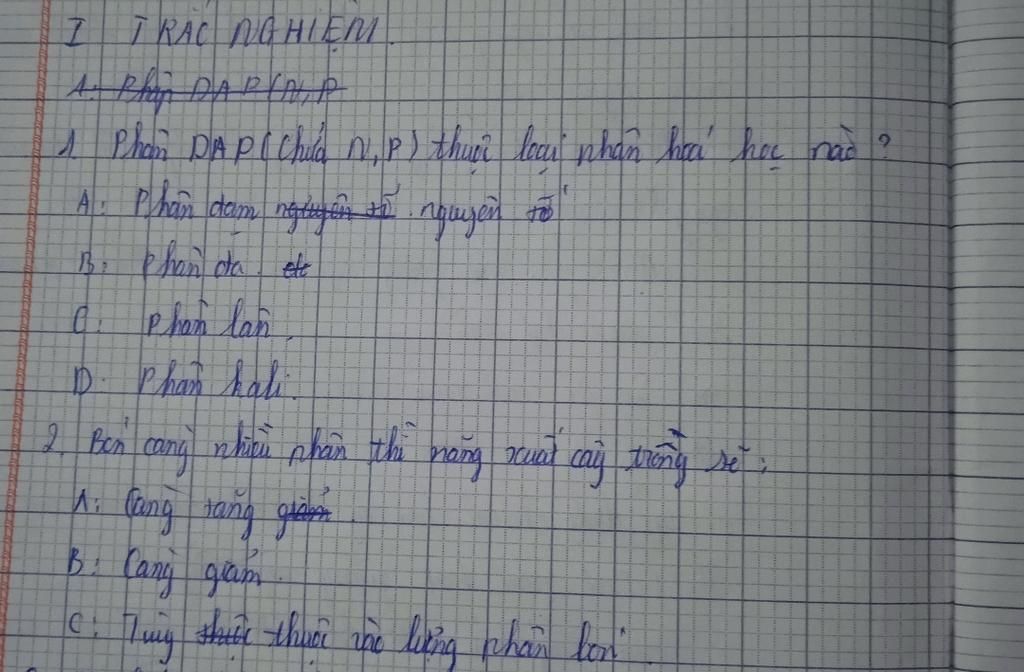 I TRẮC NGHIỆM.
A. Phân DAP (N, P
1 Phân DAP (chứa N, P) thuộc loại phân hoá học nào?
A: Phân đạm nguyên tố nguyên tố
B: Phân đa
C: Phân lân.
D. Phân kali.
2. Bón càng nhiều phân thì năng xuất cây trồng sẽ:
A: Càng tăng giảm
B: Càng giảm.
C: Tuỳ thuộc thuộc vào lượng phân bón